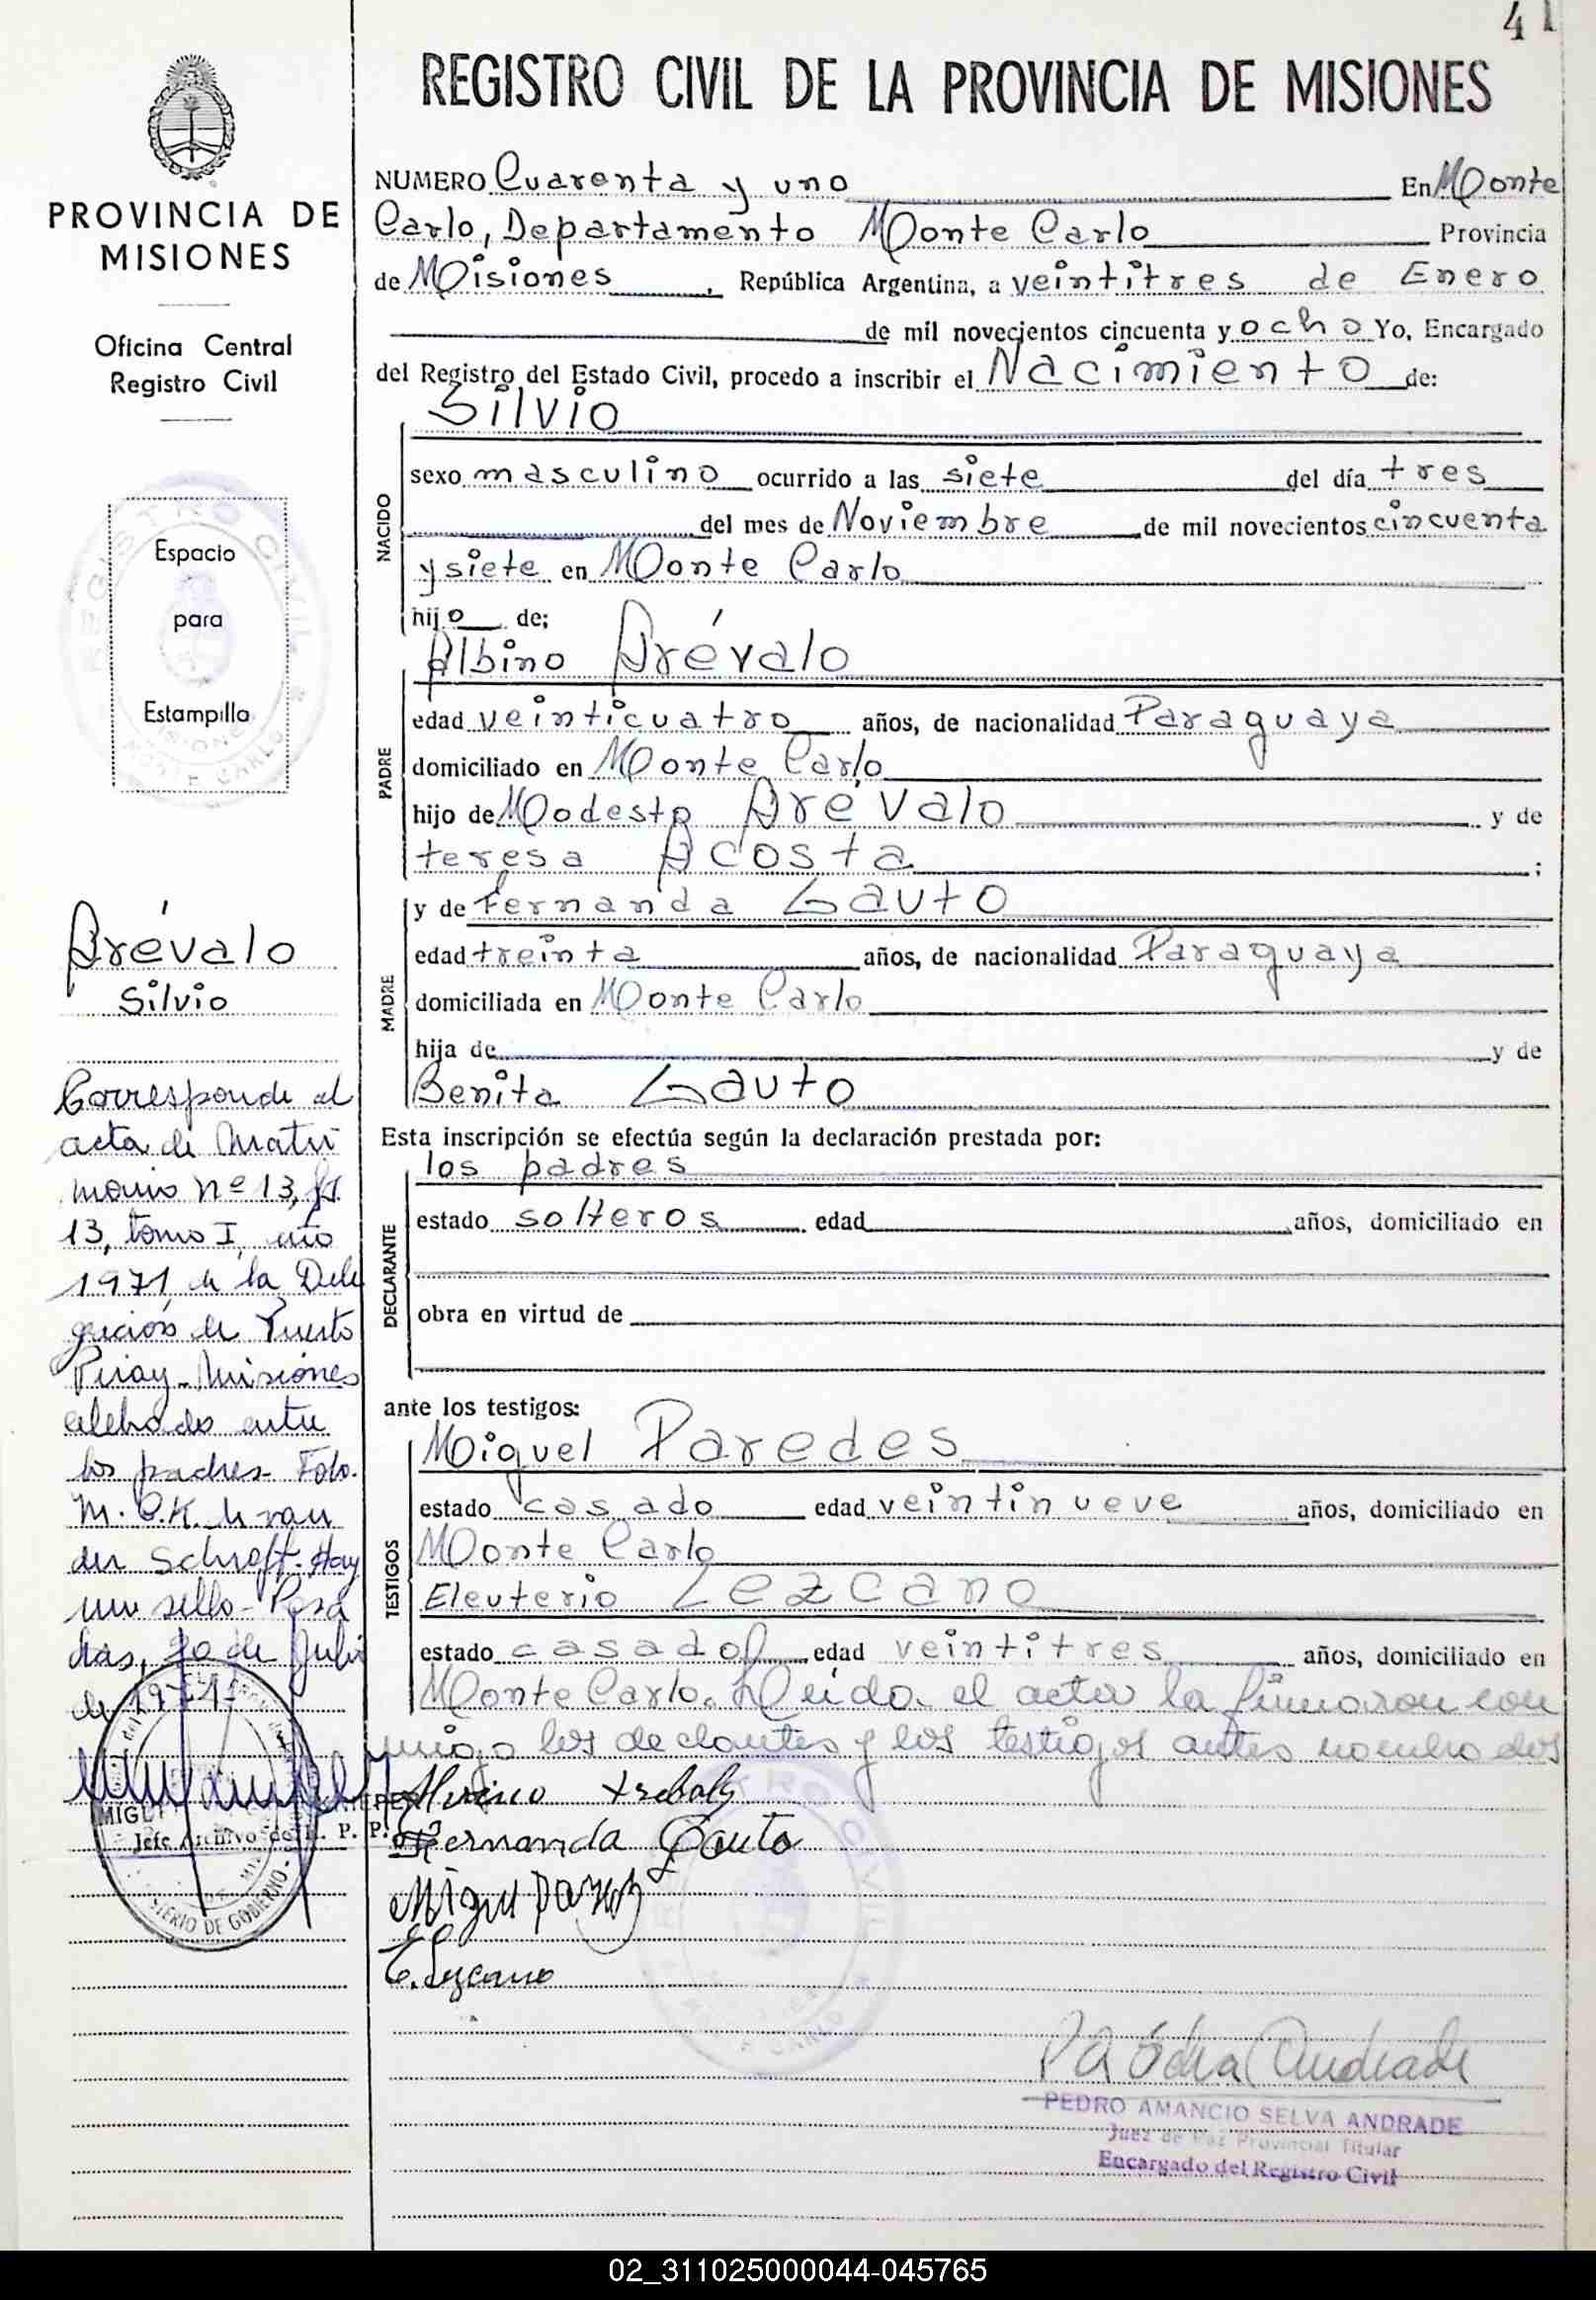 41
REGISTRO CIVIL DE LA PROVINCIA DE MISIONES
PROVINCIA DE
MISIONES
Oficina Central
Registro Civil
Espacio
para
Estampilla
REGISTRO CIVIL
MISIONES
MONTE CARLO
NUMERO Cuarenta y uno En Monte
Carlo, Departamento Monte Carlo Provincia
de Misiones, República Argentina, a veintitres de Enero
de mil novecientos cincuenta y ocho Yo, Encargado
del Registro del Estado Civil, procedo a inscribir el Nacimiento de:
NACIDO
Silvio
sexo masculino ocurrido a las siete del día tres
del mes de Noviembre de mil novecientos cincuenta
y siete en Monte Carlo
hijo de;
PADRE
Albino Arévalo
edad veinticuatro años, de nacionalidad Paraguaya
domiciliado en Monte Carlo
hijo de Modesto Arévalo y de
teresa Acosta ;
MADRE
y de Fernanda Gauto
edad treinta años, de nacionalidad Paraguaya
domiciliada en Monte Carlo
hija de y de
Benita Gauto
Esta inscripción se efectúa según la declaración prestada por:
DECLARANTE
los padres
estado solteros edad años, domiciliado en
obra en virtud de
ante los testigos:
TESTIGOS
Miguel Paredes
estado casado edad veintinueve años, domiciliado en
Monte Carlo
Eleuterio Lezcano
estado casado edad veintitres años, domiciliado en
Monte Carlo. Leído el acta la firmaron con
migo los declantes y los testigos antes nombrados
Fernanda Gauto
Miguel
E. Lezcano
PEDRO AMANCIO SELVA ANDRADE
Juez de Paz Provincial Titular
Encargado del Registro Civil
Arévalo
Silvio
Corresponde al
acta de Matri
monio nº 13, fº
13, tomo I, año
1971, de la Dele
gación de Puerto
Piray - Misiones
celebrado entre
los padres. Fdo.
M. C. K. de van
der Schroft. Hay
un sello - Posa
das, 20 de Julio
de 1971
Jefe Archivo de R. P. P.
MINISTERIO DE GOBIERNO
02_311025000044-045765